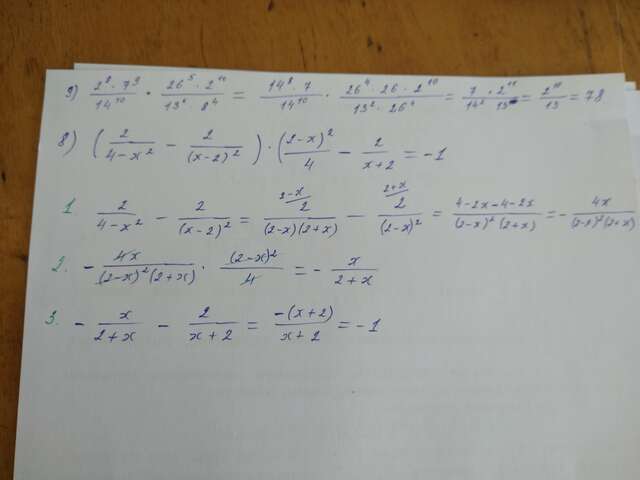 9) \frac{2^8 · 7^9}{14^{10}} · \frac{26^5 · 2^{11}}{13^6 · 8^4} = \frac{14^8 · 7}{14^{10}} · \frac{26^4 · 26 · 2^{10}}{13^2 · 26^4} = \frac{7 · 2^{11}}{14^2 · 13} = \frac{2^{10}}{13} = 78
8) (\frac{2}{4-x^2} - \frac{2}{(x-2)^2}) · \frac{(2-x)^2}{4} - \frac{2}{x+2} = -1
1. \frac{2}{4-x^2} - \frac{2}{(x-2)^2} = \frac{^{2-x/}2}{(2-x)(2+x)} - \frac{^{2+x/}2}{(2-x)^2} = \frac{4-2x-4-2x}{(2-x)^2(2+x)} = -\frac{4x}{(2-x)^2(2+x)}
2. -\frac{4x}{(2-x)^2(2+x)} · \frac{(2-x)^2}{4} = -\frac{x}{2+x}
3. -\frac{x}{2+x} - \frac{2}{x+2} = \frac{-(x+2)}{x+2} = -1